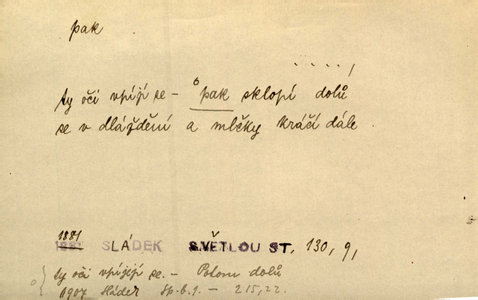 pak
. . . . ,
ty oči vpíjí se – pak sklopí dolů
se v dláždění a mlčky kráčí dále
1881
1881 SLÁDEK SVĚTLOU ST. 130, 9,
ty oči vpíjejí se. – Potom dolů
1907 Sládek Sp. b. I. – 215, 22.